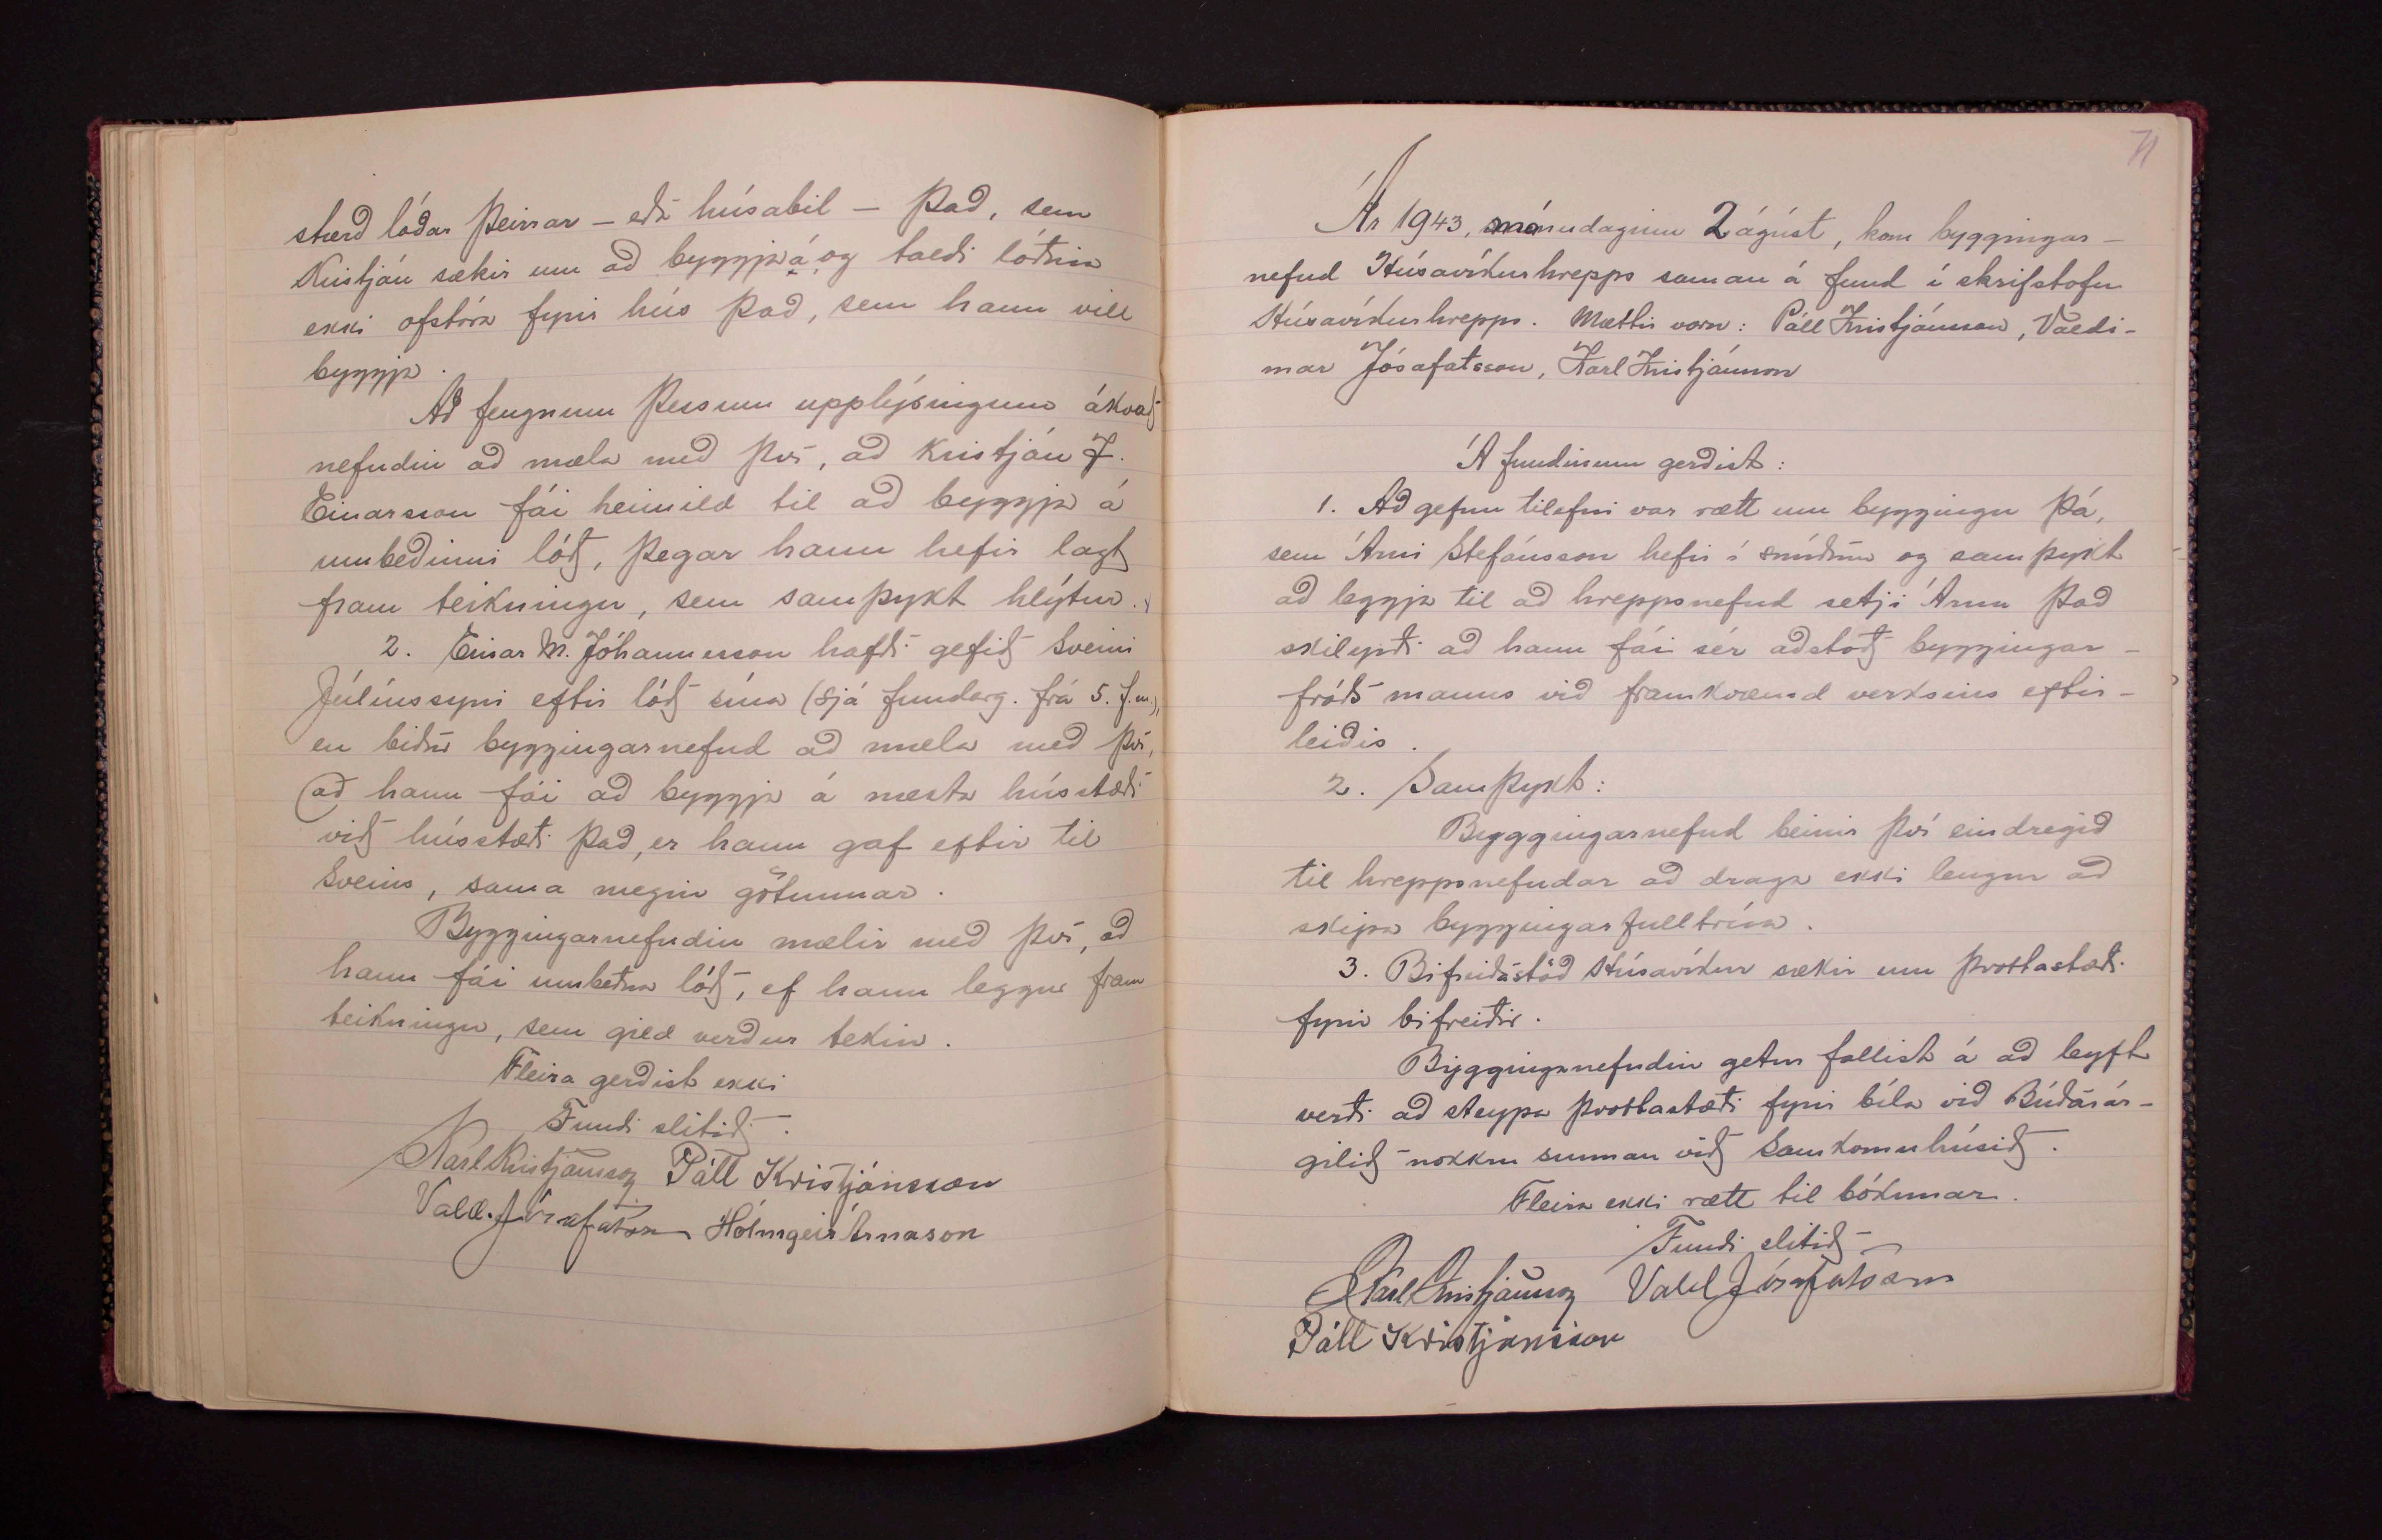 stærð lóðar þeirrar – eða húsabil – það, sem
Kristján sækir um að byggja á, og taldi lóðina
ekki ofstóra fyrir hús það, sem hann vill
byggja.
Að fengnum þessum upplýsingum ákvað
nefndin að mæla með því, að Kristján J.
Einarsson fái heimild til að byggja á
umbeðinni lóð, þegar hann hefir lagt
fram teikningu, sem samþykt hlýtur.
2. Einar M. Jóhannesson hafði gefið Sveini
Júlíussyni eftir lóð sína (sjá fundarg. frá 5. f.m.),
en biður byggingarnefnd að mæla með því,
að hann fái að byggja á næsta hússtæði
við hússtæði það, er hann gaf eftir til
Sveins, sama megin götunnar.
Byggingarnefndin mælir með því, að
hann fái umbeðna lóð, ef hann leggur fram
teikningu, sem gild verður tekin.
Fleira gerðist ekki
Fundi slitið.
Karl Kristjánsson Páll Kristjánsson
Vald. Jósafatsson Hólmgeir Árnason
71
Ár 1943, mánudaginn 2 ágúst, kom byggingar-
nefnd Húsavíkurhrepps saman á fund í skrifstofu
Húsavíkurhrepps. Mættir voru: Páll Kristjánsson, Valdi-
mar Jósafatsson, Karl Kristjánsson
Á fundinum gerðist:
1. Að gefnu tilefni var rætt um byggingu þá,
sem Árni Stefánsson hefir í smíðum og samþykt
að leggja til að hreppsnefnd setji Árna það
skilyrði að hann fái sér aðstoð byggingar-
fróðs manns við framkvæmd verksins eftir-
leiðis.
2. Samþykt:
Byggingarnefnd beinir því eindregið
til hreppsnefndar að draga ekki lengur að
skipa byggingarfulltrúa.
3. Bifreiðastöð Húsavíkur sækir um þvottastæði
fyrir bifreiðir.
Bygginganefndin getur fallist á að leyft
verði að steypa þvottastæði fyrir bíla við Búðarár-
gilið nokkru sunnan við Samkomuhúsið.
Fleira ekki rætt til bókunar.
Fundi slitið
Karl Kristjánsson Vald Jósafatsson
Páll Kristjánsson